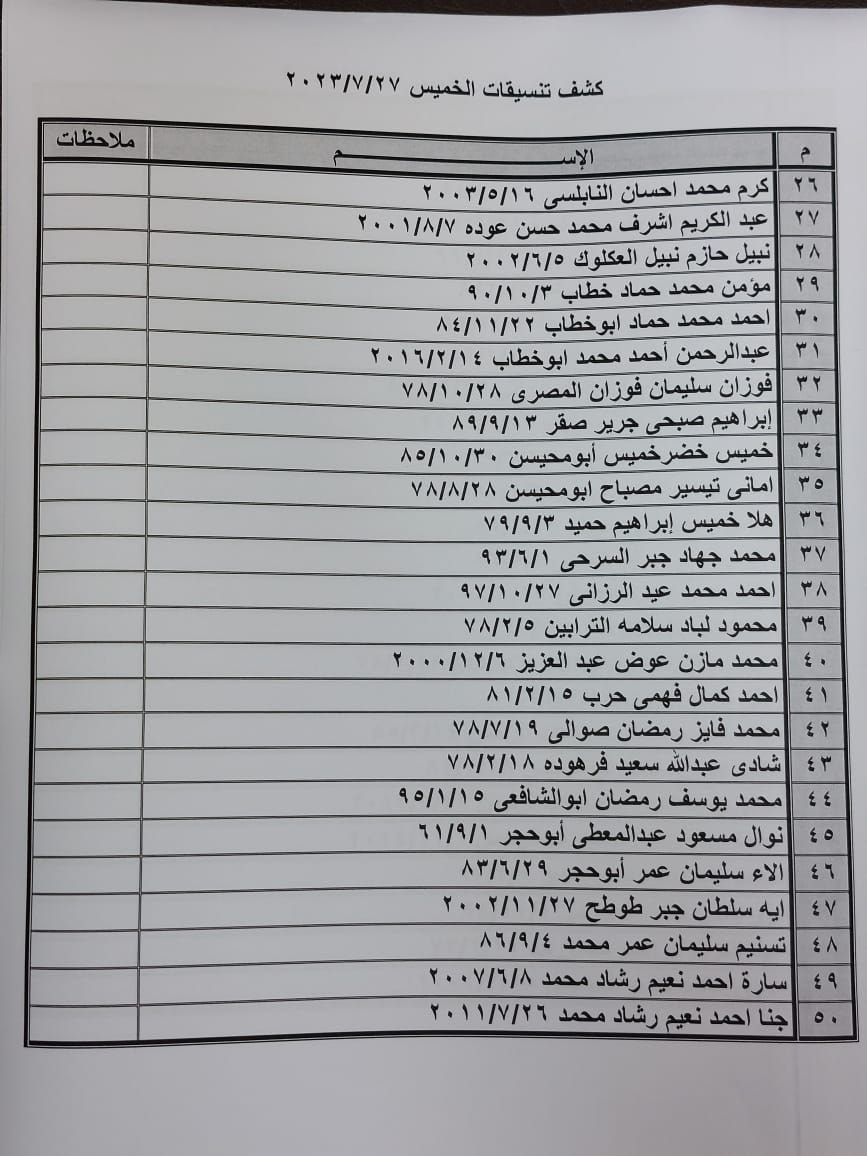 كشف تنسيقات الخميس ٢٠٢٣/٧/٢٧
م الإســـــم ملاحظات
٢٦ كرم محمد احسان النابلسى ٢٠٠٣/٥/١٦
٢٧ عبد الكريم اشرف محمد حسن عوده ٢٠٠١/٨/٧
٢٨ نبيل حازم نبيل العكلوك ٢٠٠٢/٦/٥
٢٩ مؤمن محمد حماد خطاب ٩٠/١٠/٣
٣٠ احمد محمد حماد ابوخطاب ٨٤/١١/٢٢
٣١ عبدالرحمن أحمد محمد ابوخطاب ٢٠١٦/٢/١٤
٣٢ فوزان سليمان فوزان المصرى ٧٨/١٠/٢٨
٣٣ إبراهيم صبحى جرير صقر ٨٩/٩/١٣
٣٤ خميس خضرخميس أبومحيسن ٨٥/١٠/٣٠
٣٥ امانى تيسير مصباح ابومحيسن ٧٨/٨/٢٨
٣٦ هلا خميس إبراهيم حميد ٧٩/٩/٣
٣٧ محمد جهاد جبر السرحى ٩٣/٦/١
٣٨ احمد محمد عيد الرزانى ٩٧/١٠/٢٧
٣٩ محمود لباد سلامه الترابين ٧٨/٢/٥
٤٠ محمد مازن عوض عبد العزيز ٢٠٠٠/١٢/٦
٤١ احمد كمال فهمى حرب ٨١/٢/١٥
٤٢ محمد فايز رمضان صوالى ٧٨/٧/١٩
٤٣ شادى عبدالله سعيد فرهوده ٧٨/٢/١٨
٤٤ محمد يوسف رمضان ابوالشافعى ٩٥/١/١٥
٤٥ نوال مسعود عبدالمعطى أبوحجر ٦١/٩/١
٤٦ الاء سليمان عمر أبوحجر ٨٣/٦/٢٩
٤٧ ايه سلطان جبر طوطح ٢٠٠٢/١١/٢٧
٤٨ تسنيم سليمان عمر محمد ٨٦/٩/٤
٤٩ سارة احمد نعيم رشاد محمد ٢٠٠٧/٦/٨
٥٠ جنا احمد نعيم رشاد محمد ٢٠١١/٧/٢٦